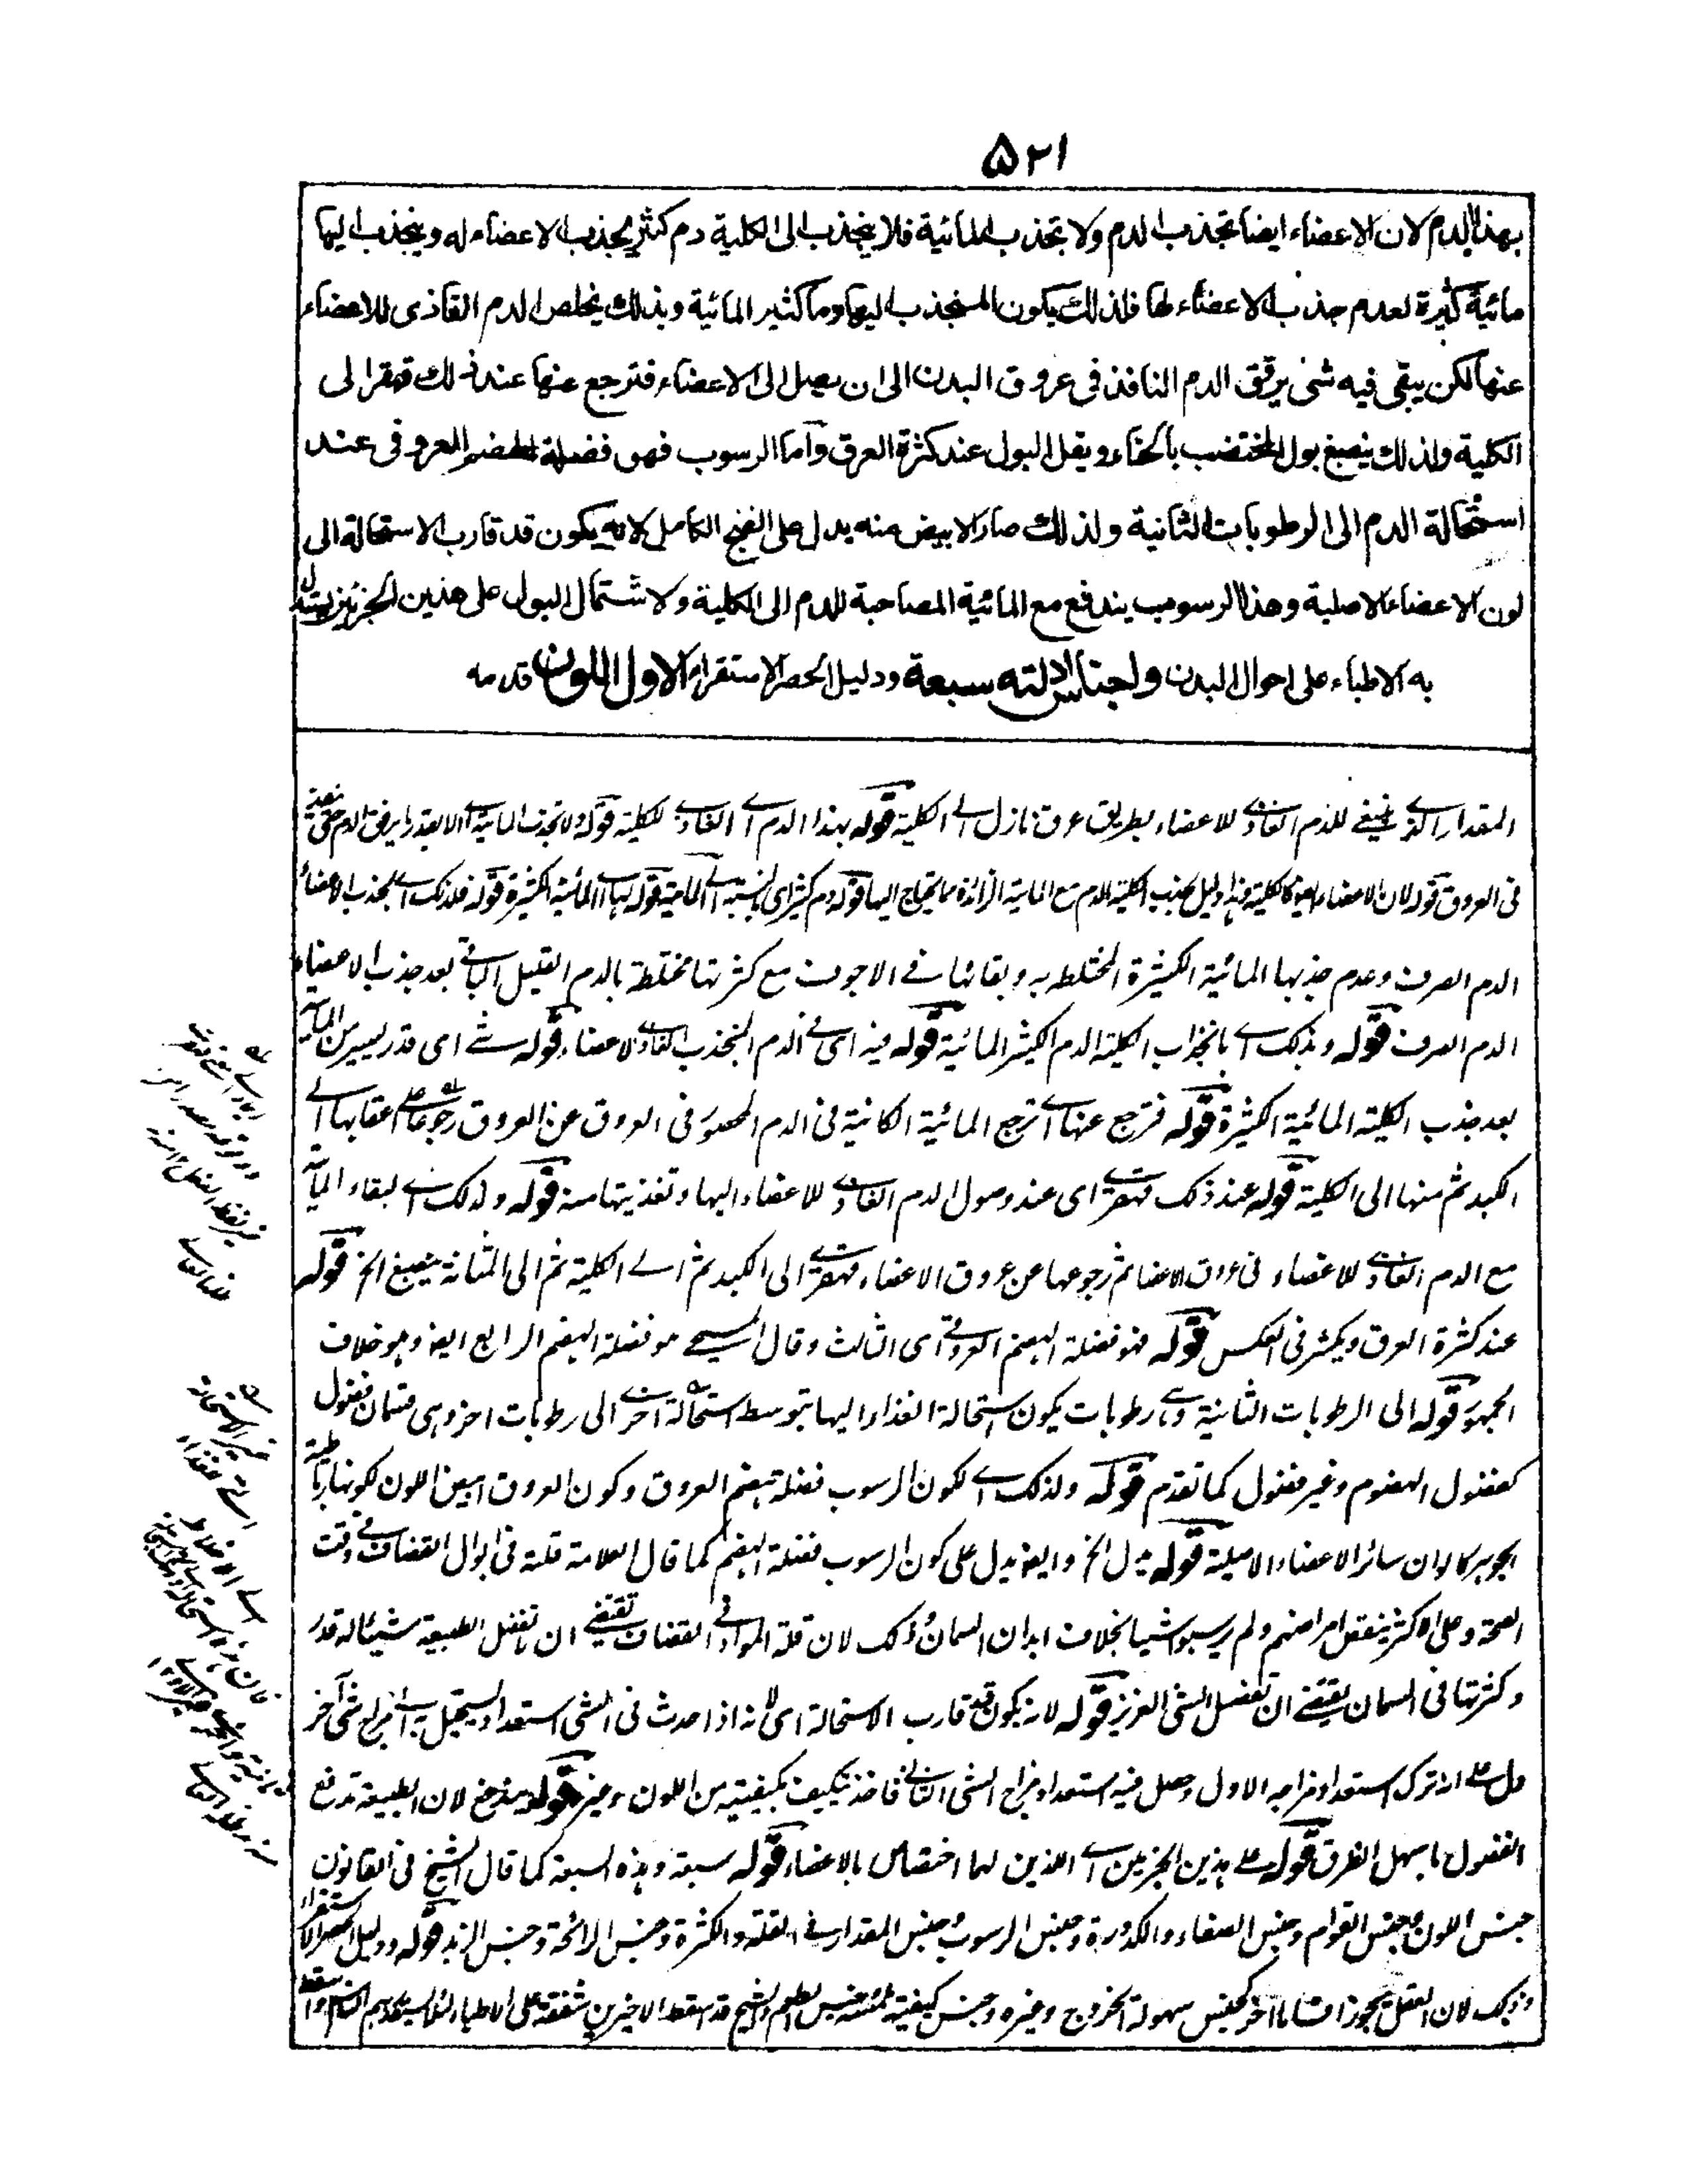 ۵۲۱
بهذا الدم لان الاعضاء ايضا تجذب الدم ولا تجذب المائية فلا ينجذب الى الكلية دم كثير لجذب الاعضاء له وينجذب اليها
مائية كثيرة لعدم جذب الاعضاء لها فلذلك يكون المنجذب اليها دما كثير المائية وبذلك يخلص الدم الغاذى للاعضاء
عنها لكن يبقى فيه شئ يرقق الدم النافذ فى عروق البدن الى ان يصل الى الاعضاء فترجع عنها عند ذلك قهقرا لى
الكلية ولذلك ينصبغ بول المختضب بالحناء ويقل البول عند كثرة العرق وآما الرسوب فهو فضلة الهضم العروقى عند
استحالة الدم الى الرطوبات الثانية ولذلك صار الابيض منه يدل على النضج الكامل لانه يكون قد قارب الاستحالة الى
لون الاعضاء الاصلية وهذا الرسوب يندفع مع المائية المصاحبة للدم الى الكلية ولاشتمال البول على هذين الجزئين يستدل
به الاطباء على احوال البدن واجناس ادلته سبعة ودليل الحصر الاستقراء الاول اللون قدمه
المقدار الذى ينبغى للدم الغاذى للاعضاء بطريق عرق نازل الى الكلية قوله بهذا الدم اى الغاذى للكلية قوله ولا تجذب المائية اى الا بقدر ما يرقق الدم حتى ينفذ
فى العروق قوله لان الاعضاء ايضا كالكلية هذا دليل جذب الكلية للدم مع المائية الزائدة مما يحتاج اليها قوله دم كثير اى بالنسبة الى المائية قوله لها اى المائية الكثيرة قوله فلذلك اى لجذب الاعضاء
الدم الصرف وعدم جذبها المائية الكثيرة المختلطة به وبقائها فى الاجوف مع كثرتها مختلطة بالدم القليل الباقى بعد جذب الاعضاء
الدم الصرف قوله وبذلك اى بانجذاب الكلية الدم الكثير المائية قوله فيه اى فى الدم المنجذب الغاذى للاعضاء قوله شئ اى قدر يسير من المائية
بعد جذب الكلية المائية الكثيرة قوله فترجع عنها اى ترجع المائية الكائنة فى الدم المحصور فى العروق عن العروق رجوعا على اعقابها الى
الكبد ثم منها الى الكلية قوله عند ذلك قهقرى اى عند وصول الدم الغاذى للاعضاء اليها وتغذيتها منه قوله ولذلك اى لبقاء المائية
مع الدم الغاذى للاعضاء فى عروق الاعضاء ثم رجوعها عن عروق الاعضاء قهقرى الى الكبد ثم الى الكلية ثم الى المثانة ينصبغ الخ قوله
عند كثرة العرق ويكثر فى العكس قوله فهو فضلة الهضم العروقى اى الثالث وقال المسيحى هو فضلة الهضم الرابع ايضا وهو خلاف
الجمهور قوله الى الرطوبات الثانية وهى رطوبات يكون استحالة الغذاء اليها بتوسط استحالة اخرى الى رطوبات اخر وهى قسمان فضول
كفضول الهضوم وغير فضول كما تقدم قوله ولذلك اى لكون الرسوب فضلة هضم العروق وكون العروق ابيض اللون لكونها رباطية
الجوهر كالوان سائر الاعضاء الاصلية قوله يدل الخ وايضا يدل على كون الرسوب فضلة الهضم كما قال العلامة قلته فى ابوال القضاف فى وقت
الصحة وعلى الاكثر ينفصل امراضهم ولم يرسبوا شيئا بخلاف ابدان السمان ذلك لان قلة المواد فى القضاف تقتضى ان لا تفضل الطبيعة شيئا له قدر
وكثرتها فى السمان يقتضى ان تفضل الشئ الغزير قوله لانه يكون قد قارب الاستحالة اى لانه اذا حدث فى الشئ استعداد يستحيل به الى مزاج شئ آخر
دل على انه ترك استعداد مزاجه الاول وحصل فيه استعداد مزاج الشئ الثانى فاخذ يتكيف بكيفيته من اللون وغيره قوله يندفع لان الطبيعة تدفع
الفضول باسهل الطرق قوله على هذين الجزئين اى اللذين لهما اختصاص بالاعضاء قوله سبعة وهذه السبعة كما قال الشيخ فى القانون
جنس اللون وجنس القوام وجنس الصفاء والكدورة وجنس الرسوب وجنس المقدار فى القلة والكثرة وجنس الرائحة وجنس الزبد قوله ودليل الحصر الاستقراء
وذلك لان العقل يجوز اقساما اخر كجنس سهولة الخروج وغيره وجنس كيفية لمسه وجنس الطعم والشيخ قد اسقط الاخيرين شفقة على الاطباء لئلا